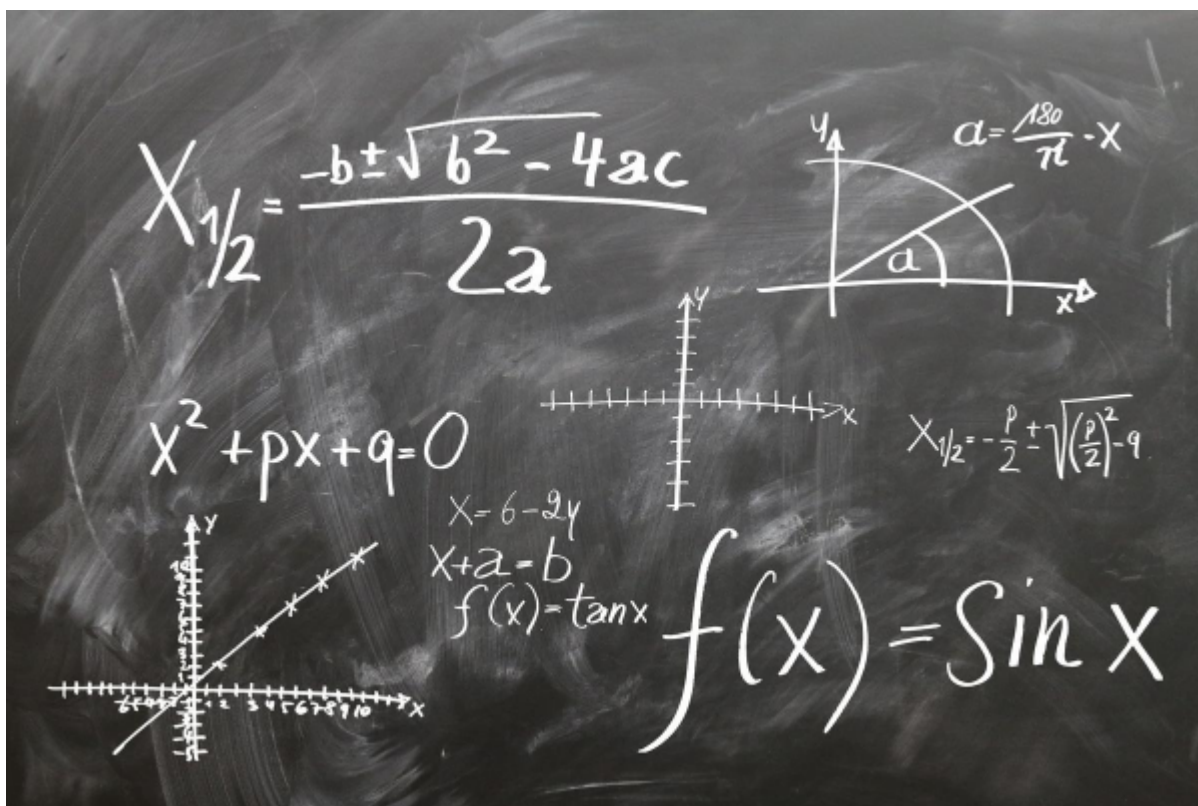 X₁/₂ = (-b ± √(b² - 4ac)) / 2a
y
a = 180/π - X
a
x
y
x
X² + px + q = 0
X₁/₂ = -p/2 ± √((p/2)² - q)
X = 6 - 2y
X + a = b
f(x) = tan x
f(x) = Sin X
y
1 2 3 4 5 6 7 8 9 10
x